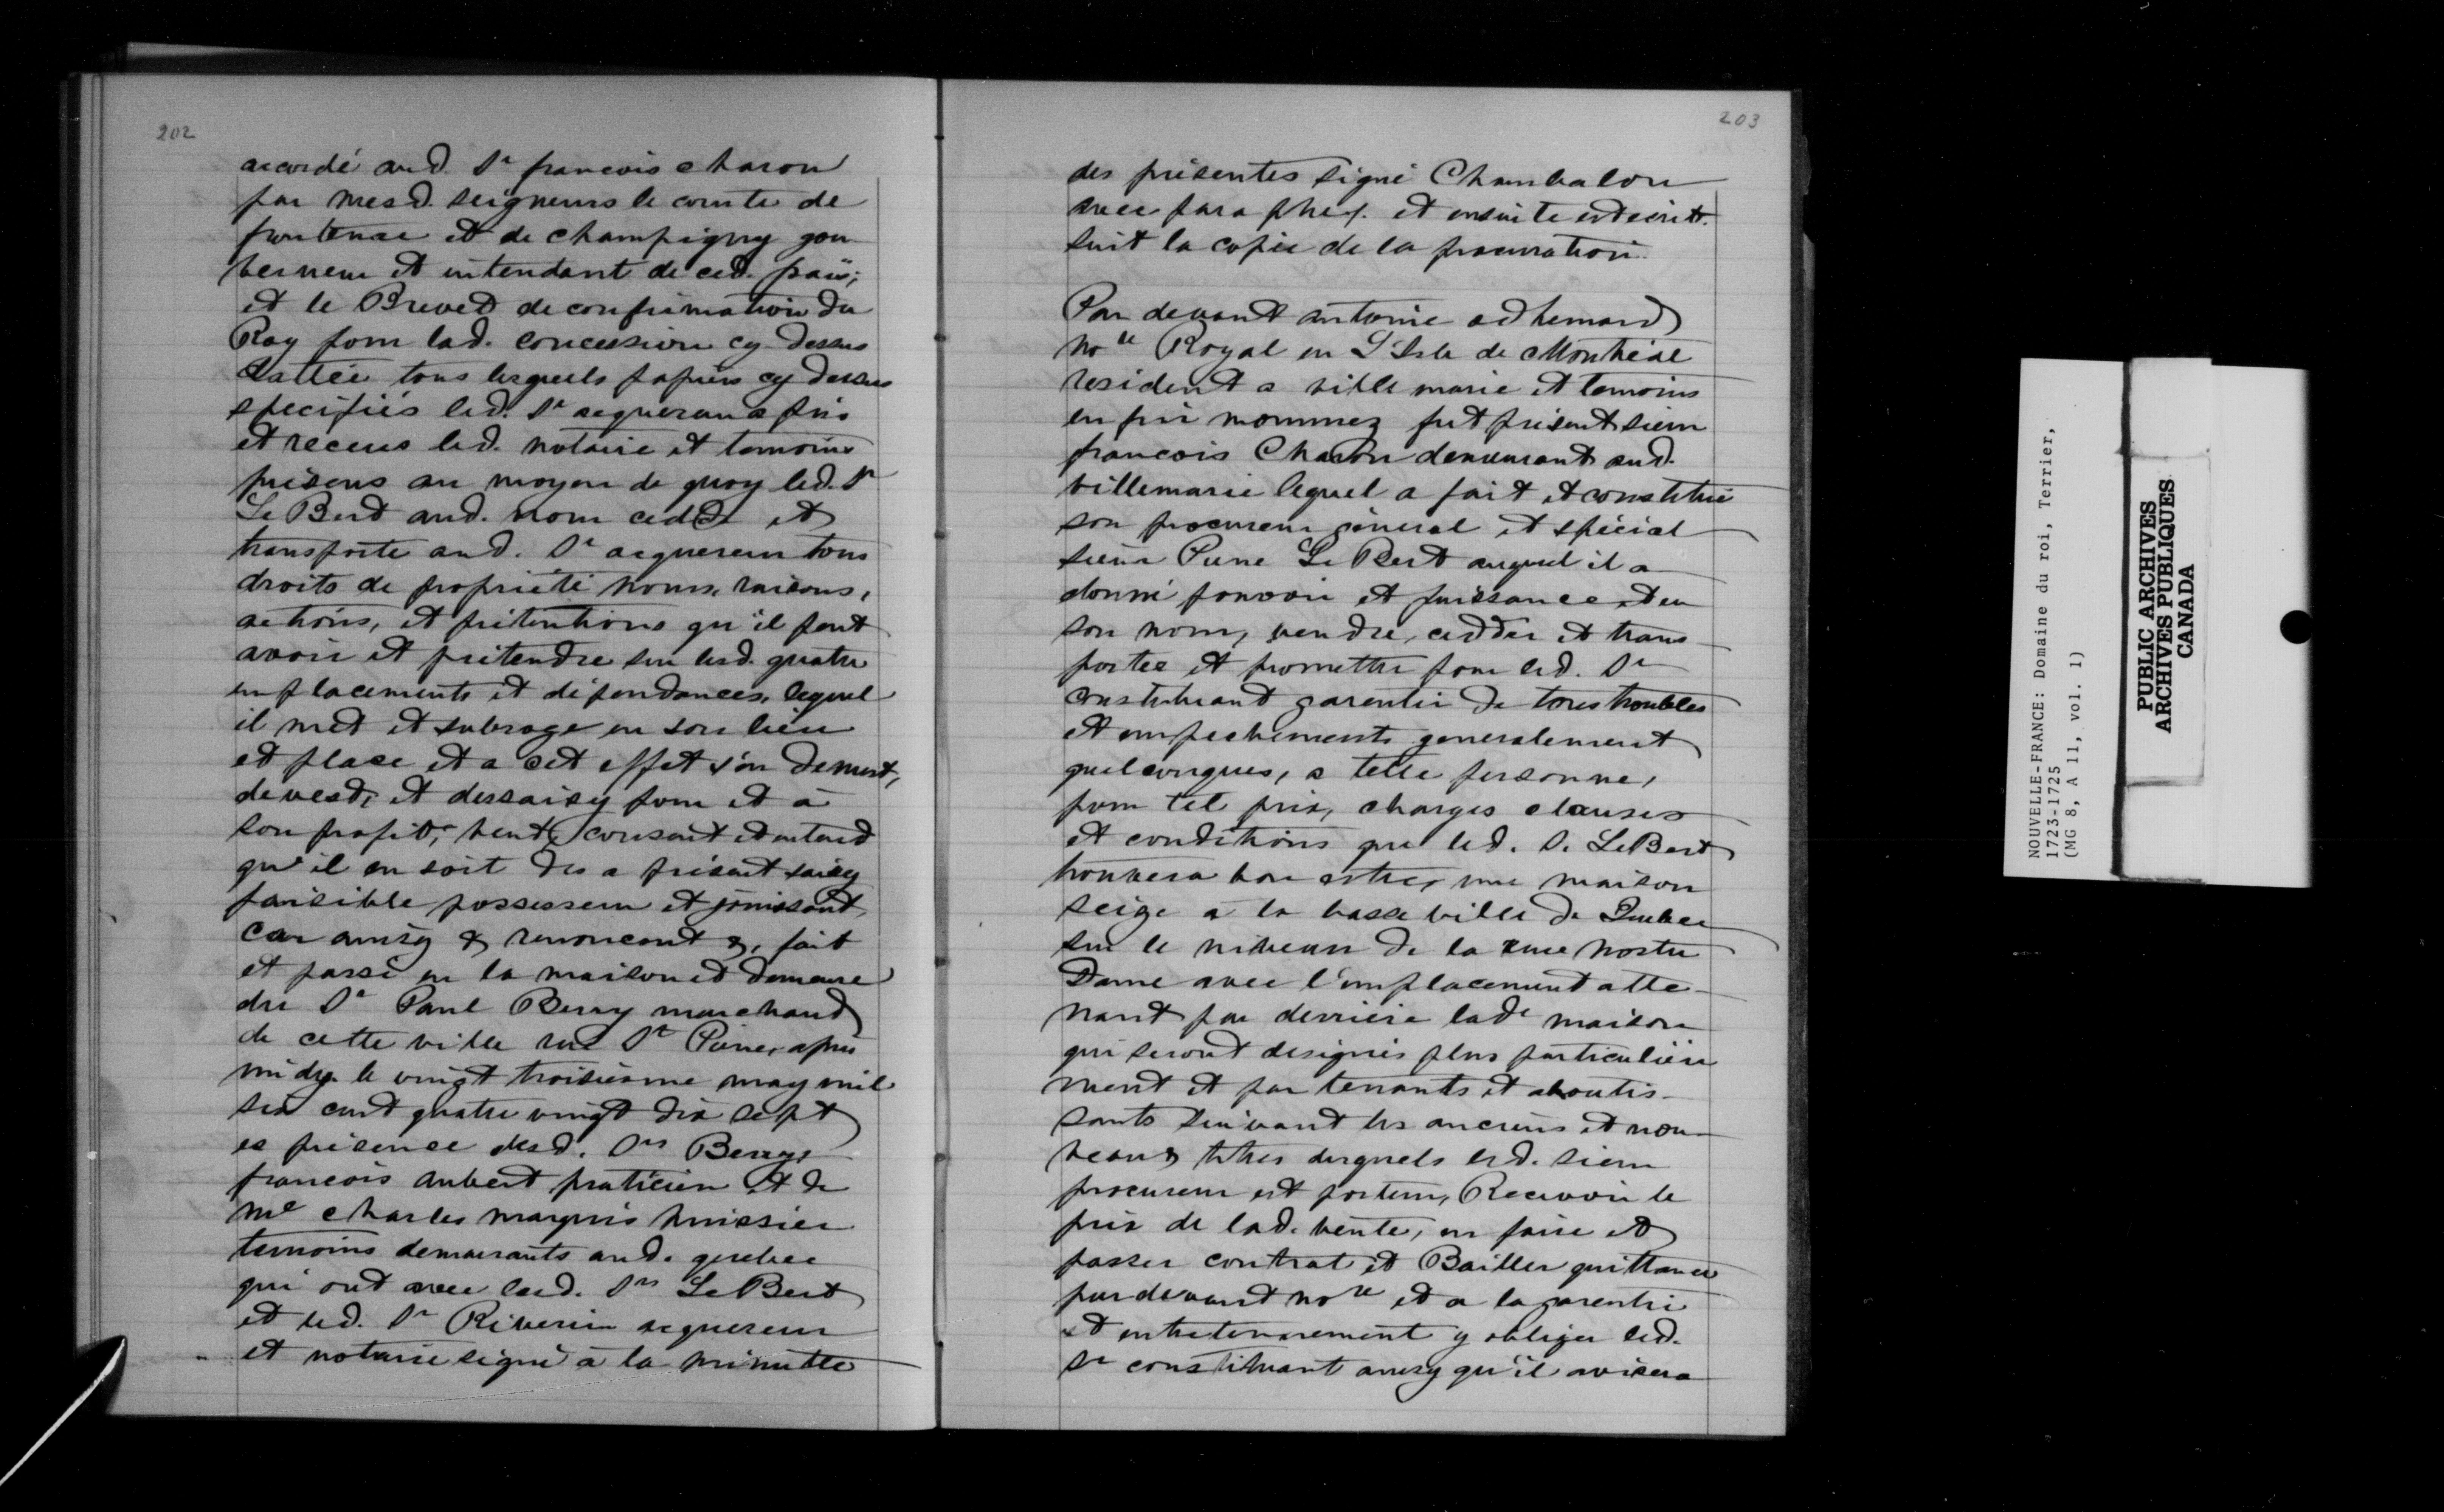 202
accordé aud. Sr francois charon
par mesd. seigneurs le comte de
frontenac et de champigny gou
verneur et intendant de ced. païs;
et le Brevet de confirmation du
Roy pour lad. concession cy dessus
dattée tous lesquels papiers cy dessus
specifiés led. Sr acquereur a pris
et receus led. notaire et temoins
présens au moyen de quoy led. Sr
Le Bert aud. nom cedde et
transporte aud. Sr acquereur tous
droits de propriété noms, raisons,
actions, et prétentions qu'il peut
avoir et prétendre sur lesd. quatre
emplacements et dépendances, lequel
il met et subroge en son lieu
et place et a cet effet s'en demest,
devest, et dessaisy pour et à
son profit, veut, consent et entend
qu'il en soit des a présent saisy
paisible possesseur et jouissant,
car ainsy & renoncent &, fait
et passé en la maison et demeure
du Sr Paul Berry marchand
de cette ville rue St Pierre, après
midy le vingt troisiesme may mil
six cent quatre vingt dix sept
es présence desd. Srs Berry,
francois aubert praticien et de
me charles marquis huissier
temoins demeurants aud. quebec
qui ont avec led. Srs Le Bert
et led. Sr Riverin acquereur
et notaire signé à la minutte
203
des présentes signé Chambalon
avec paraphe/. et ensuite est écrit.
suit la copie de la procuration.
Par devant antoine adhemard
nore Royal en L'Isle de Montréal
resident a ville marie et temoins
en fin nommez fut présent sieur
francois Charon demeurant aud.
villemarie lequel a fait et constitué
son procureur géneral et spécial
sieur Pierre Le Bert auquel il a
donné pouvoir et puissance et en
son nom, vendre, cedder et trans
porter et promettre pour led. Sr
constituant garentir de tous troubles
et empeschements generalement
quelconques, a telle personne,
pour tel prix, charges clauses
et conditions que led. S. LeBert
trouvera bon estre, une maison
seize à la basse ville de Quebec
sur le niveau de la rue nostre
Dame avec l'emplacement atte-
nant par derrière lade maison
qui seront designés plus particulière
ment et par tenants et aboutis-
sants suivant les anciens et nou-
veaux titres desquels led. sieur
procureur est porteur, Recevoir le
prix de lad. vente, en faire et
passer contrat et Bailler quittance
pardevant nore et a la garentie
et entretenement y obliger led.
Sr constituant ainsy qu'il avisera
NOUVELLE-FRANCE: Domaine du roi, Terrier,
1723-1725
(MG 8, A 11, vol. 1)
PUBLIC ARCHIVES
ARCHIVES PUBLIQUES
CANADA